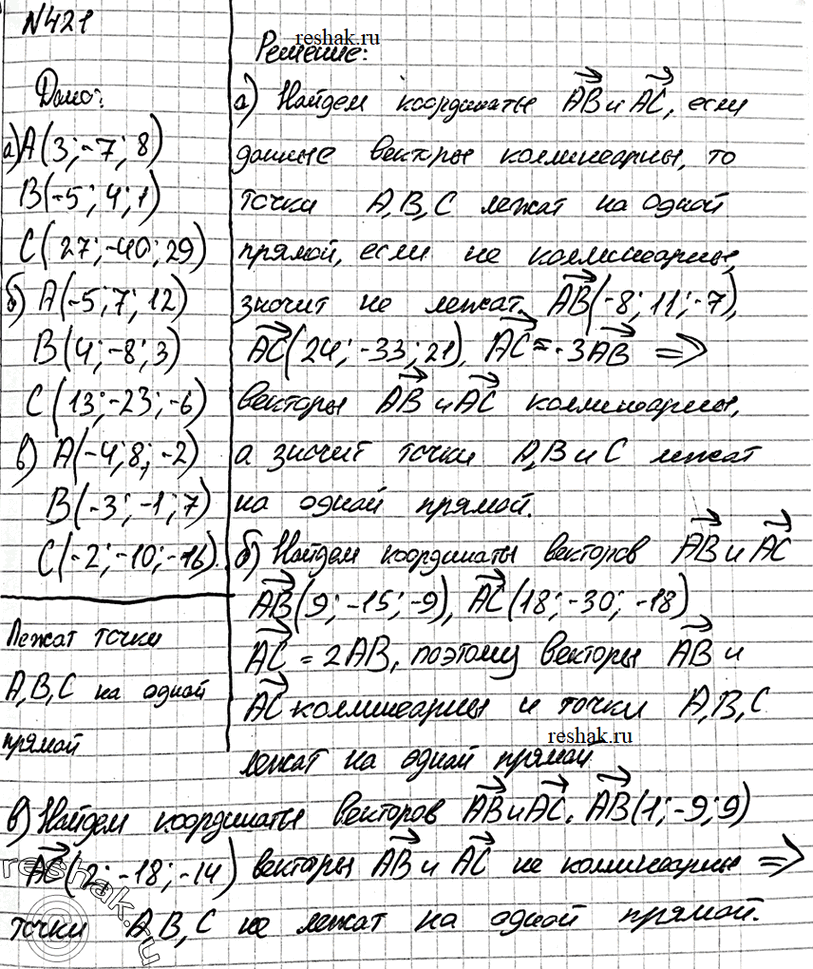 N421
reshak.ru
Решение:
Дано:
а) A(3;-7;8)
B(-5;4;1)
C(27;-40;29)
б) A(-5;7;12)
B(4;-8;3)
C(13;-23;-6)
в) A(-4;8;-2)
B(-3;-1;7)
C(-2;-10;-16).
Лежат точки
A,B,C на одной
прямой
а) Найдем координаты AB и AC, если
данные векторы коллинеарны, то
точки A,B,C лежат на одной
прямой, если не коллинеарны,
значит не лежат. AB(-8;11;-7),
AC(24;-33;21), AC=-3AB =>
векторы AB и AC коллинеарны,
а значит точки A,B и C лежат
на одной прямой.
б) Найдем координаты векторов AB и AC
AB(9;-15;-9), AC(18;-30;-18)
AC=2AB, поэтому векторы AB и
AC коллинеарны и точки A,B,C
reshak.ru
лежат на одной прямой
в) Найдем координаты векторов AB и AC. AB(1;-9;9)
AC(2;-18;-14) векторы AB и AC не коллинеарны =>
точки A,B,C не лежат на одной прямой.
reshak.ru